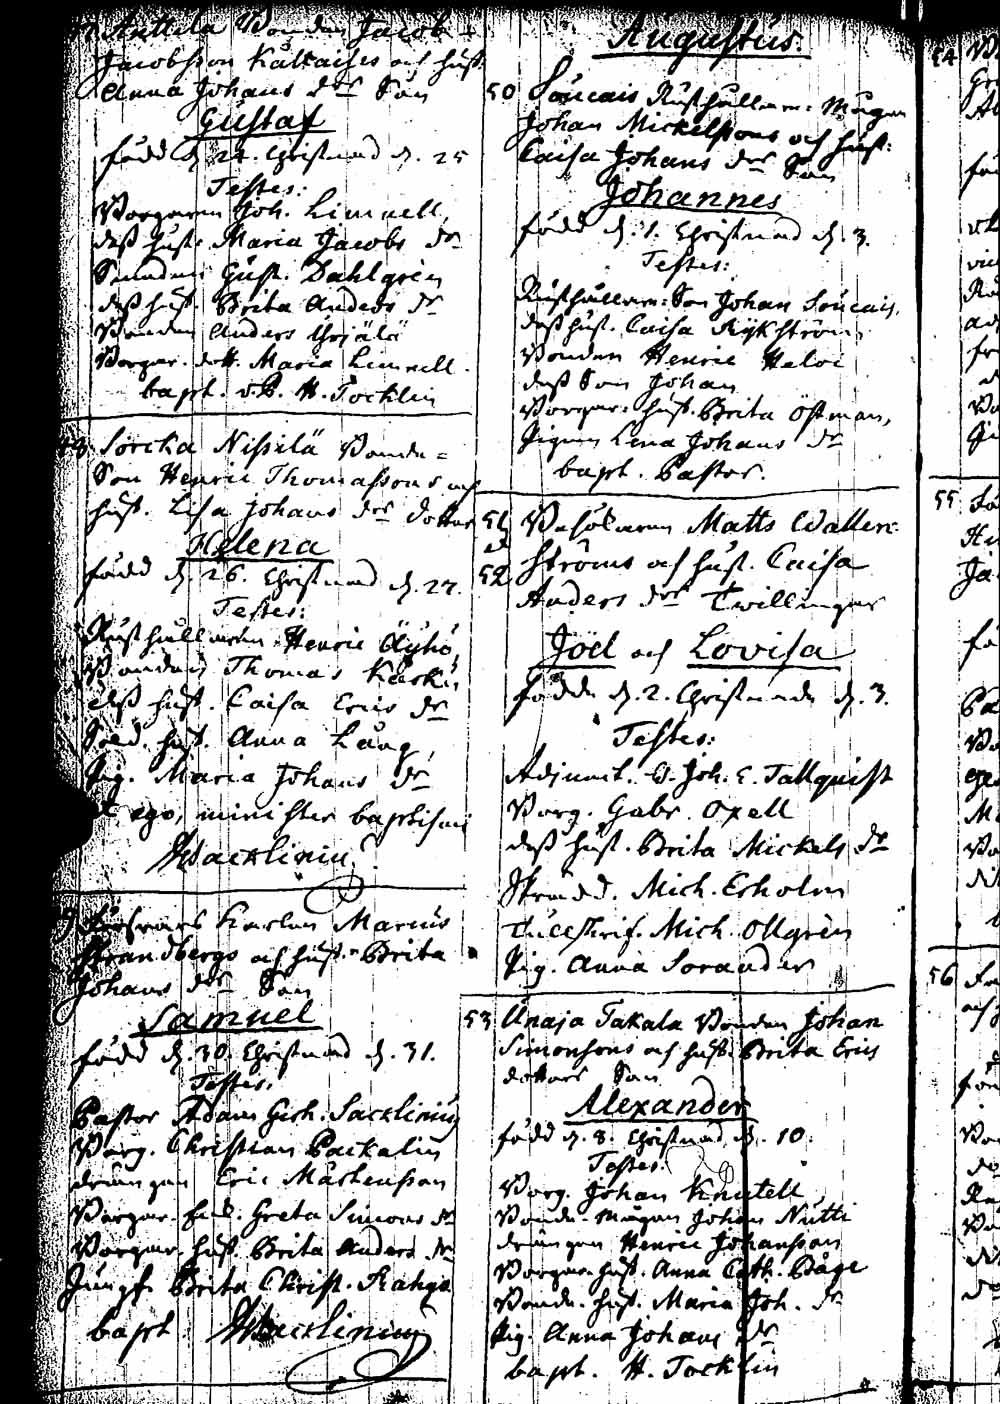 Anttila Bonden Jacob
Jacobsson Kalkaises och hust.
Anna Johans dr Son
Gustaf
född d. 24. Christnad d. 25
Testes:
Borgaren Joh. Limnell,
dess hust. Maria Jacobs dr
Gust. Dahlgren
dess hust. Brita Anders dr
Bonden Anders Yrjälä
Borgar. dott. Maria Limnell.
bapt. v.P. H. Tocklin
48. Sorcka Nissilä Bonde=
Son Henric Thomassons och
hust. Lisa Johans der dotter
Helena
född d. 26. Christnad d. 27.
Testes:
Rusthållaren Henric Äyhö,
Bonden Thomas Karki,
dess hust. Caisa Erics dr
Sold. hust. Anna Lång,
Pig. Maria Johans dr
et ego, minister baptismi
Sacklinius
Karlen Marcus
Strandbergs och hust. Brita
Johans der Son
Samuel
född d. 30. Christnad d. 31.
Testes:
Pastor Adam Gerh. Sacklinius
Borg. Christian Packalin
drängen Eric Mårtensson
Borgar. Enk. Greta Simons dr
Borgar. hust. Brita Anders dr
Jungf. Brita Christ.
bapt. Sacklinius
Augustus.
50 Soucais Rusthållare= Mågen
Johan Mickelssons och hust:
Caisa Johans der Son
Johannes
född d. 1. Christnad d. 3.
Testes:
Rusthållare=Son Johan Soucais,
dess hust. Caisa Rykström
Bonden Henric Heloi
dess Son Johan
Borgar. hust. Brita Östman,
Pigan Lena Johans dr
bapt. Pastor.
51 Matts Wallen=
et
52 ströms och hust. Caisa
Anders der Twillingar
Joel och Lovisa
födde d. 2. Christnade d. 3.
Testes:
Adjunct. Joh. E. Tallquist
Borg. Gabr. Oxell
dess hust. Brita Mickels dr
Skrädd. Mich. Erholm
Tullskrif. Mich. Ollgren
Pig. Anna Sorander
53 Unaja Takala Bonden Johan
Simonsons och hust. Brita Erics
dotters Son
Alexander
född d. 8. Christnad d. 10.
Testes:
Borg. Johan Knutell
Bonde-Mågen Johan Nutti
drängen Henric Johansson
Borgar. hust. Anna Cath. Båge
Bonde. hust. Maria Joh. dr
Pig. Anna Johans dr
bapt. H. Tocklin
54
55
56